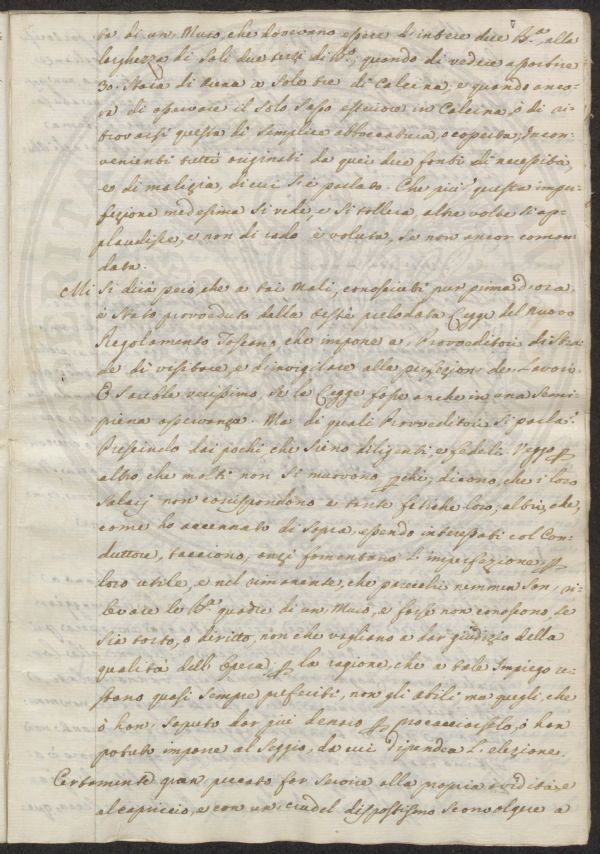 ta di un Muro, che dovevano essere d'intere due B.ª, alla
larghezza di soli due terzi di B.ª; quando di vedere apportire
30. Staia di Rena a sole tre di Calcina, e quando anco-
ra di osservare il solo sasso esteriore in Calcina, ò di ri-
trovarsi questa di semplice abboccatura, o coperta; Incon-
venienti tutti originati da quei due fonti di necessità,
e di malizia, di cui si è parlato. Che più? questa imper-
fezione medesima si vede, e si tollera, altre volte si ap-
plaudisce, e non di rado è voluta, se non ancor coman-
data.
Mi si dirà però, che a tai Mali, conosciuti pur prima d'ora
è stato provveduto dalla testè prelodata Legge del nuovo
Regolamento Toscano, che impone a Provveditori di Stra-
de di visitare, e d'invigilare alla perfezione de Lavori.
E sarebbe verissimo, se la Legge fosse anche in una semi-
piena osservanza. Ma di quali Provveditori si parla?
Prescindo dai pochi, che sieno diligenti, e fedeli. Veggo per
altro che molti non si muovono perchè, dicono, che i loro
Salarj non corrispondono a tante fatiche loro, altri, che,
come ho accennato di sopra, essendo interessati col Con-
duttore, tacciono, anzi fomentano l'imperfezione per
loro utile, e nel rimanente, che parecchi nemmen san, ri-
levare le B.ª quadre di un Muro, e forse non conoscono se
sia torto, o diritto, non che vagliano a dar giudizio della
qualità dell'Opera, per la ragione, che a tale Impiego re-
stano quasi sempre preferiti, non gli abili ma quegli, che
ò han saputo dar più denaro per procacciarselo, ò han
potuto imporre al Seggio, da cui dipendea l'elezione.
Certamente gran peccato far servire alla propria avidità, e
al capriccio, e con un crudel dispotismo sconvolgere a